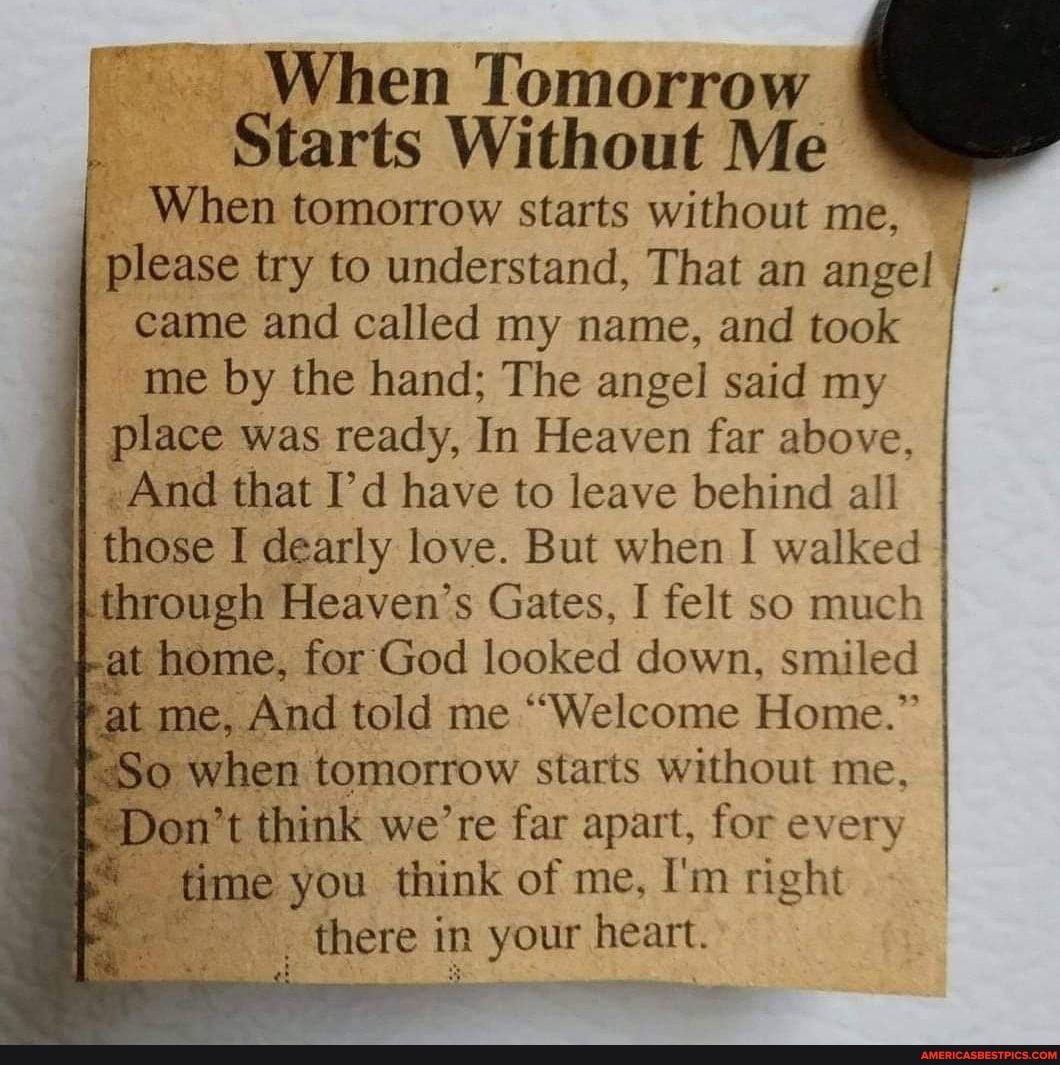 When Tomorrow
Starts Without Me
When tomorrow starts without me,
please try to understand, That an angel
came and called my name, and took
me by the hand; The angel said my
place was ready, In Heaven far above,
And that I’d have to leave behind all
those I dearly love. But when I walked
through Heaven’s Gates, I felt so much
at home, for God looked down, smiled
at me, And told me “Welcome Home.”
So when tomorrow starts without me,
Don’t think we’re far apart, for every
time you think of me, I'm right
there in your heart.
AMERICASBESTPICS.COM